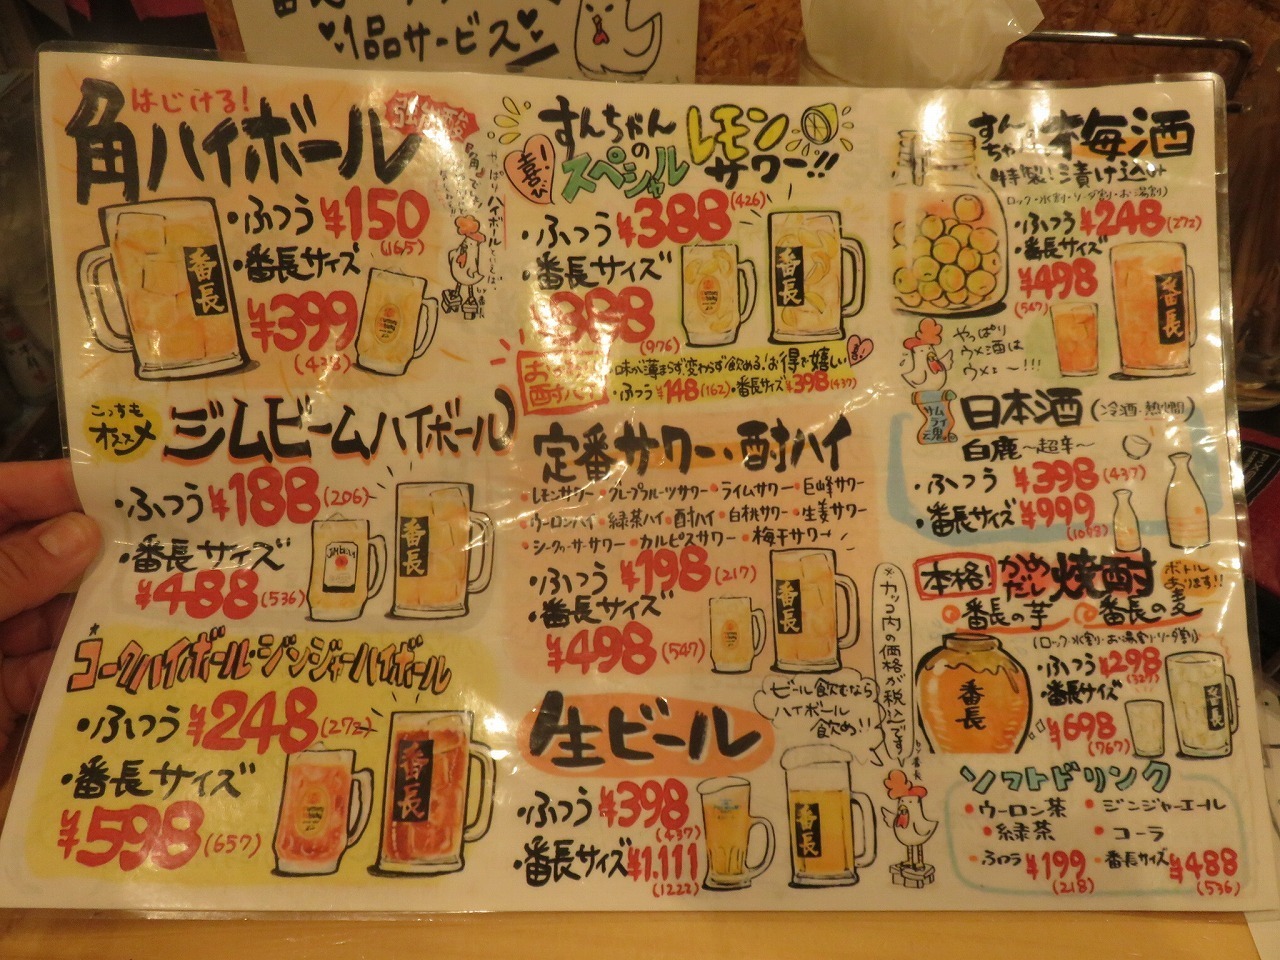 1品サービス
はじける!
角ハイボール
・ふつう ¥150
(165)
・番長サイズ
¥399
番長
こっちも
オススメ
ジムビームハイボール
・ふつう ¥188(206)
・番長サイズ
¥488(536)
番長
コークハイボール・ジンジャーハイボール
・ふつう ¥248(272)
・番長サイズ
¥598(657)
番長
すんちゃんの
スペシャル
レモン
サワー!!
喜び!
・ふつう ¥388(426)
・番長サイズ
(976)
番長
味が薄まらず変わらず飲める!お得で嬉しい
・ふつう ¥148(162)・番長サイズ ¥398(437)
定番サワー・酎ハイ
・レモンサワー・グレープフルーツサワー・ライムサワー・巨峰サワー
・ウーロンハイ・緑茶ハイ・酎ハイ・白桃サワー・生姜サワー
・シークヮーサーサワー・カルピスサワー・梅干サワー
・ふつう ¥198(217)
・番長サイズ
¥498(547)
番長
※カッコ内の価格が税込です!
by番長
生ビール
ビール飲むなら
ハイボール
飲め!!
・ふつう ¥398
(437)
・番長サイズ ¥1.111
(1222)
番長
梅酒
特製!漬け込み
ロック・水割・ソーダ割・お湯割
・ふつう ¥248(272)
・番長サイズ
¥498
(547)
番長
やっぱり
ウメ酒は
ウメぇ〜!!!
サムライ
日本酒(冷酒・熱燗)
白鹿〜超辛〜
・ふつう ¥398(437)
・番長サイズ ¥999
本格!かめだし焼酎
ボトル
あります!!
番長の芋 番長の麦
(ロック・水割・お湯割・ソーダ割)
・ふつう ¥298
(327)
・番長サイズ
¥698
(767)
番長
番長
ソフトドリンク
・ウーロン茶 ・ジンジャーエール
・緑茶 ・コーラ
・ふつう ¥199 ・番長サイズ ¥488
(218) (536)